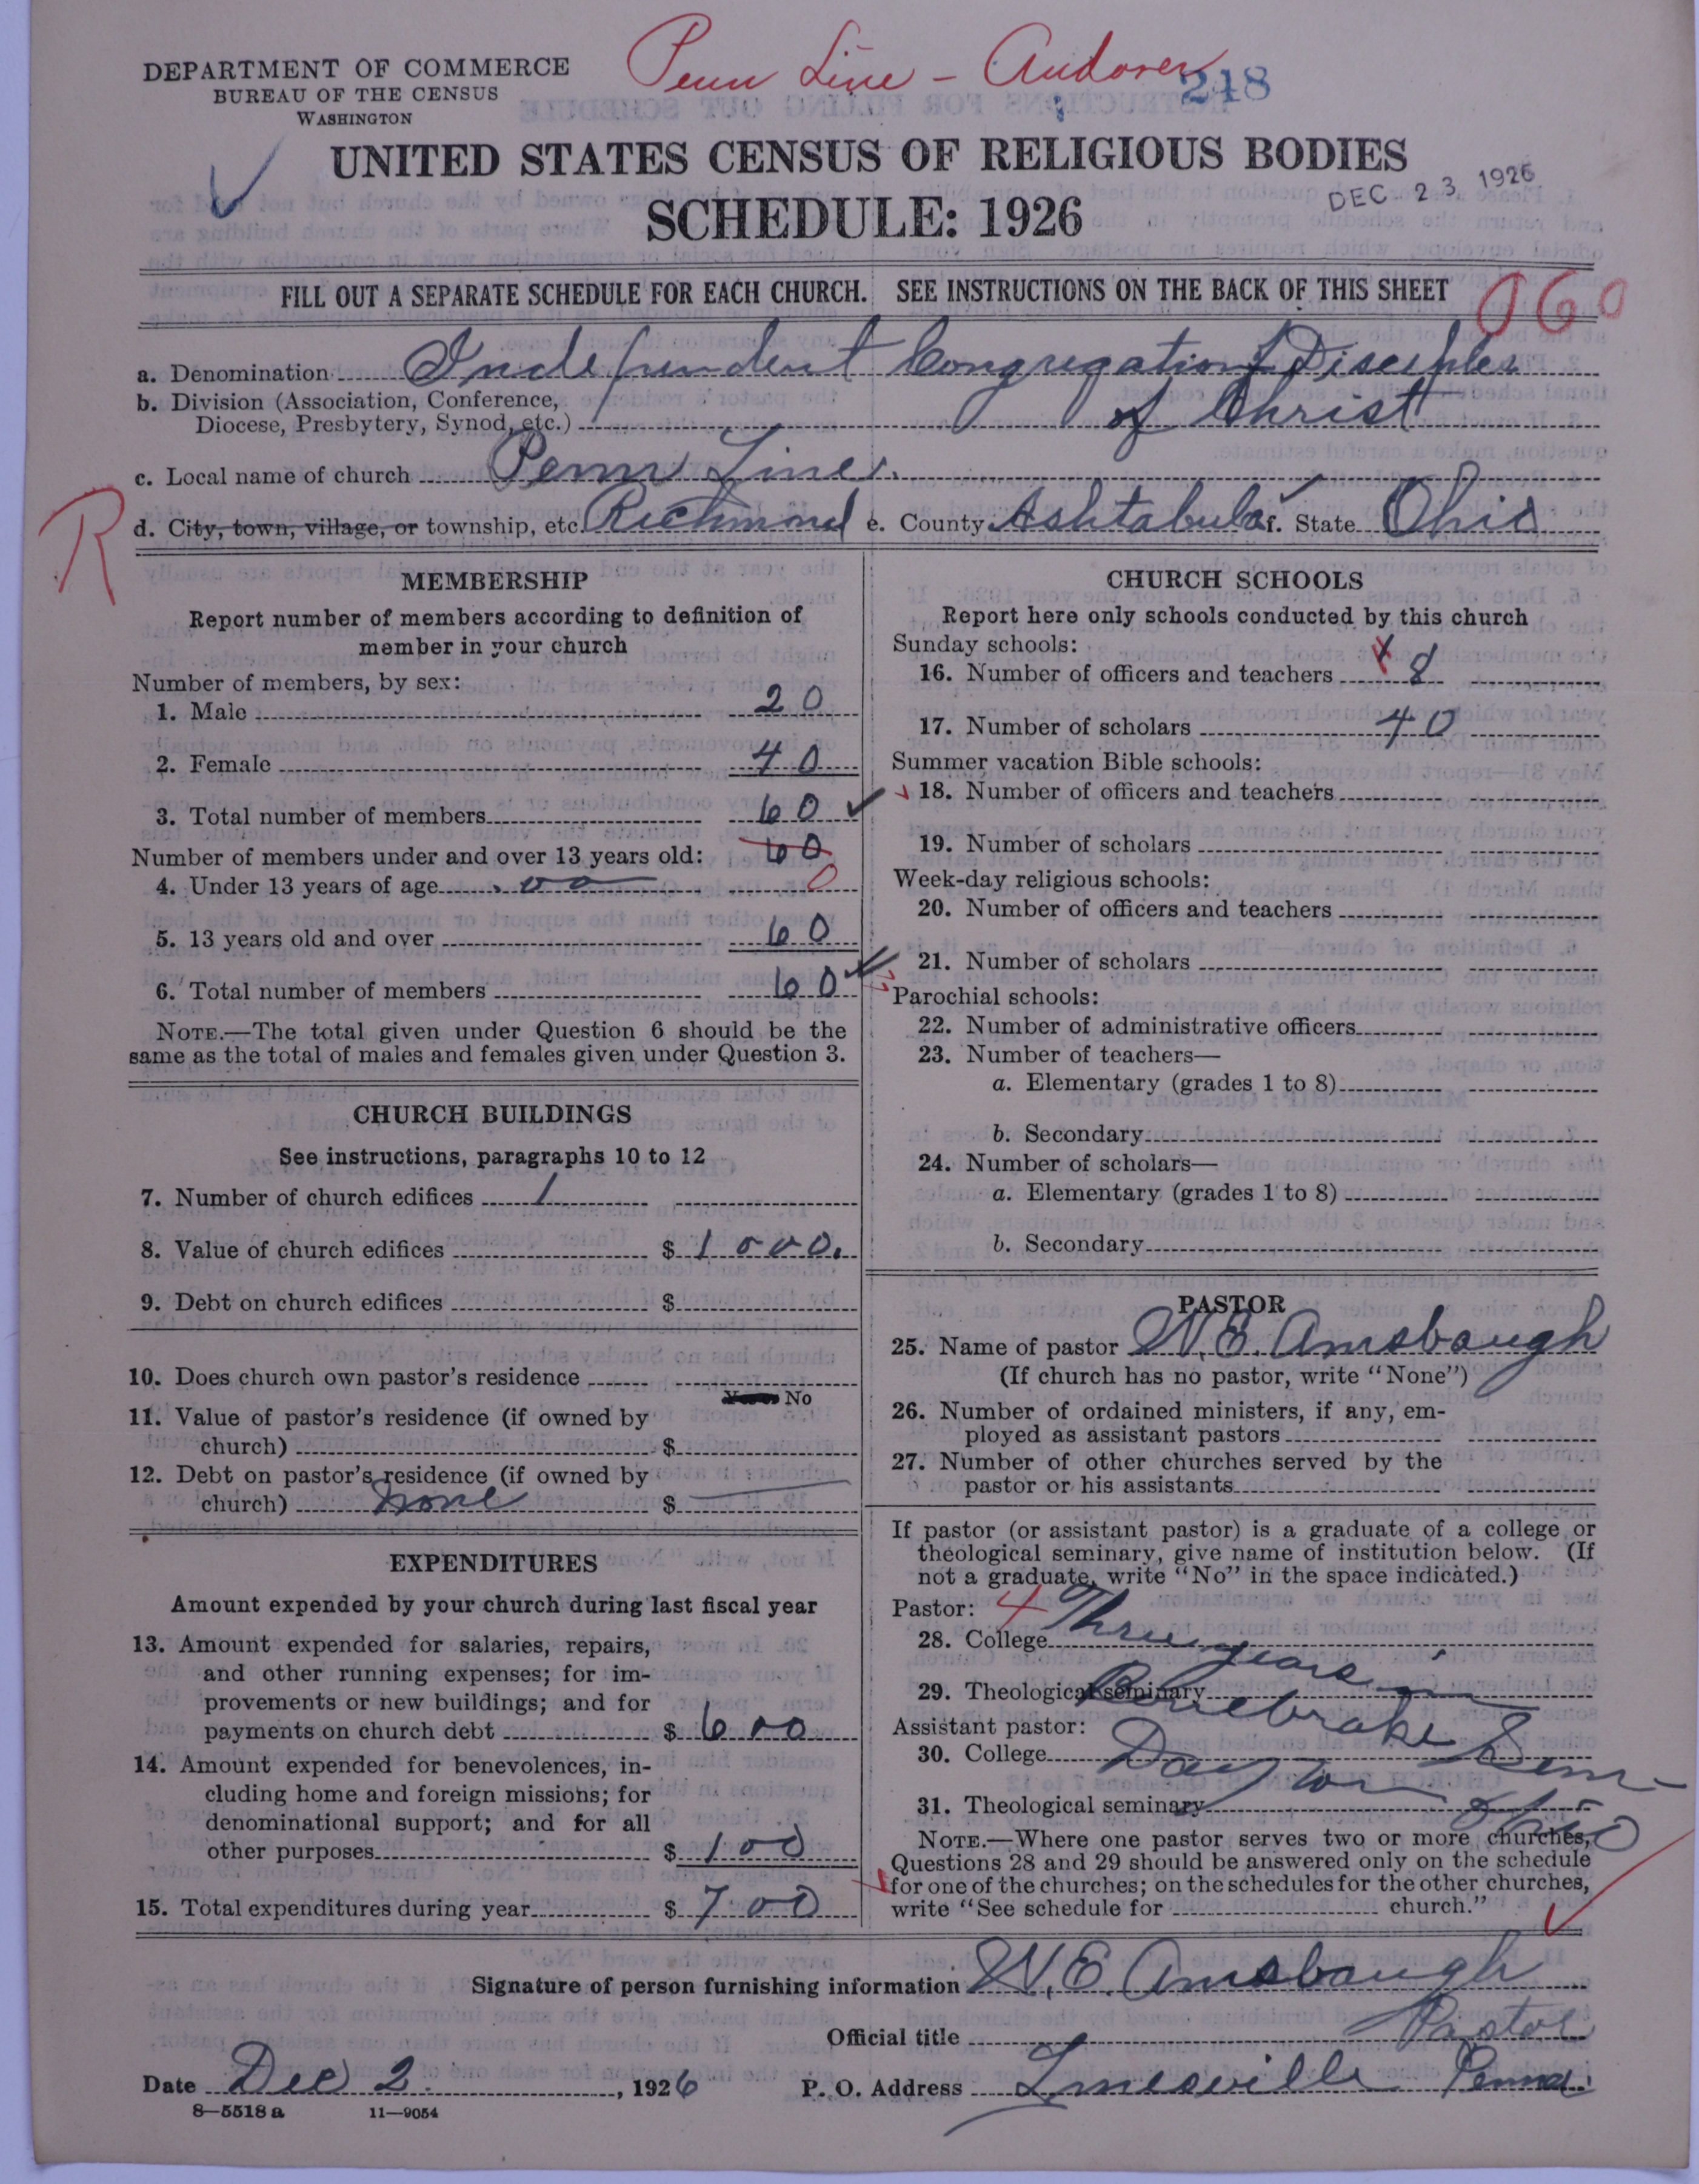 Penn Line - Andover
248
DEPARTMENT OF COMMERCE
BUREAU OF THE CENSUS
WASHINGTON
UNITED STATES CENSUS OF RELIGIOUS BODIES
SCHEDULE: 1926
DEC 23 1926
FILL OUT A SEPARATE SCHEDULE FOR EACH CHURCH. SEE INSTRUCTIONS ON THE BACK OF THIS SHEET
060
a. Denomination Independent Congregation of Disciples
b. Division (Association, Conference, of Christ
Diocese, Presbytery, Synod, etc.)
c. Local name of church Penn Line
R
d. City, town, village, or township, etc. Richmond e. County Ashtabula f. State Ohio
MEMBERSHIP
Report number of members according to definition of
member in your church
Number of members, by sex:
1. Male 20
2. Female 40
3. Total number of members 60
Number of members under and over 13 years old: 60
4. Under 13 years of age 00 0
5. 13 years old and over 60
6. Total number of members 60
NOTE.—The total given under Question 6 should be the
same as the total of males and females given under Question 3.
CHURCH BUILDINGS
See instructions, paragraphs 10 to 12
7. Number of church edifices 1
8. Value of church edifices $ 1000.
9. Debt on church edifices $
10. Does church own pastor's residence
No
11. Value of pastor's residence (if owned by
church) $
12. Debt on pastor's residence (if owned by
church) None $
EXPENDITURES
Amount expended by your church during last fiscal year
13. Amount expended for salaries, repairs,
and other running expenses; for im-
provements or new buildings; and for
payments on church debt $ 600
14. Amount expended for benevolences, in-
cluding home and foreign missions; for
denominational support; and for all
other purposes $ 100
15. Total expenditures during year $ 700
CHURCH SCHOOLS
Report here only schools conducted by this church
Sunday schools:
16. Number of officers and teachers 8
17. Number of scholars 40
Summer vacation Bible schools:
18. Number of officers and teachers
19. Number of scholars
Week-day religious schools:
20. Number of officers and teachers
21. Number of scholars
Parochial schools:
22. Number of administrative officers
23. Number of teachers—
a. Elementary (grades 1 to 8)
b. Secondary
24. Number of scholars—
a. Elementary (grades 1 to 8)
b. Secondary
PASTOR
25. Name of pastor W. E. Amsbaugh
(If church has no pastor, write "None")
26. Number of ordained ministers, if any, em-
ployed as assistant pastors
27. Number of other churches served by the
pastor or his assistants
If pastor (or assistant pastor) is a graduate of a college or
theological seminary, give name of institution below. (If
not a graduate, write "No" in the space indicated.)
Pastor:
28. College Three
years in
29. Theological seminary Bonebrake Sem
Assistant pastor:
30. College Dayton
31. Theological seminary Ohio
NOTE.—Where one pastor serves two or more churches,
Questions 28 and 29 should be answered only on the schedule
for one of the churches; on the schedules for the other churches,
write "See schedule for church."
Signature of person furnishing information W. E. Amsbaugh
Official title Pastor
Date Dec 2, 1926 P. O. Address Linesville Penna.
8—5518 a 11—9054